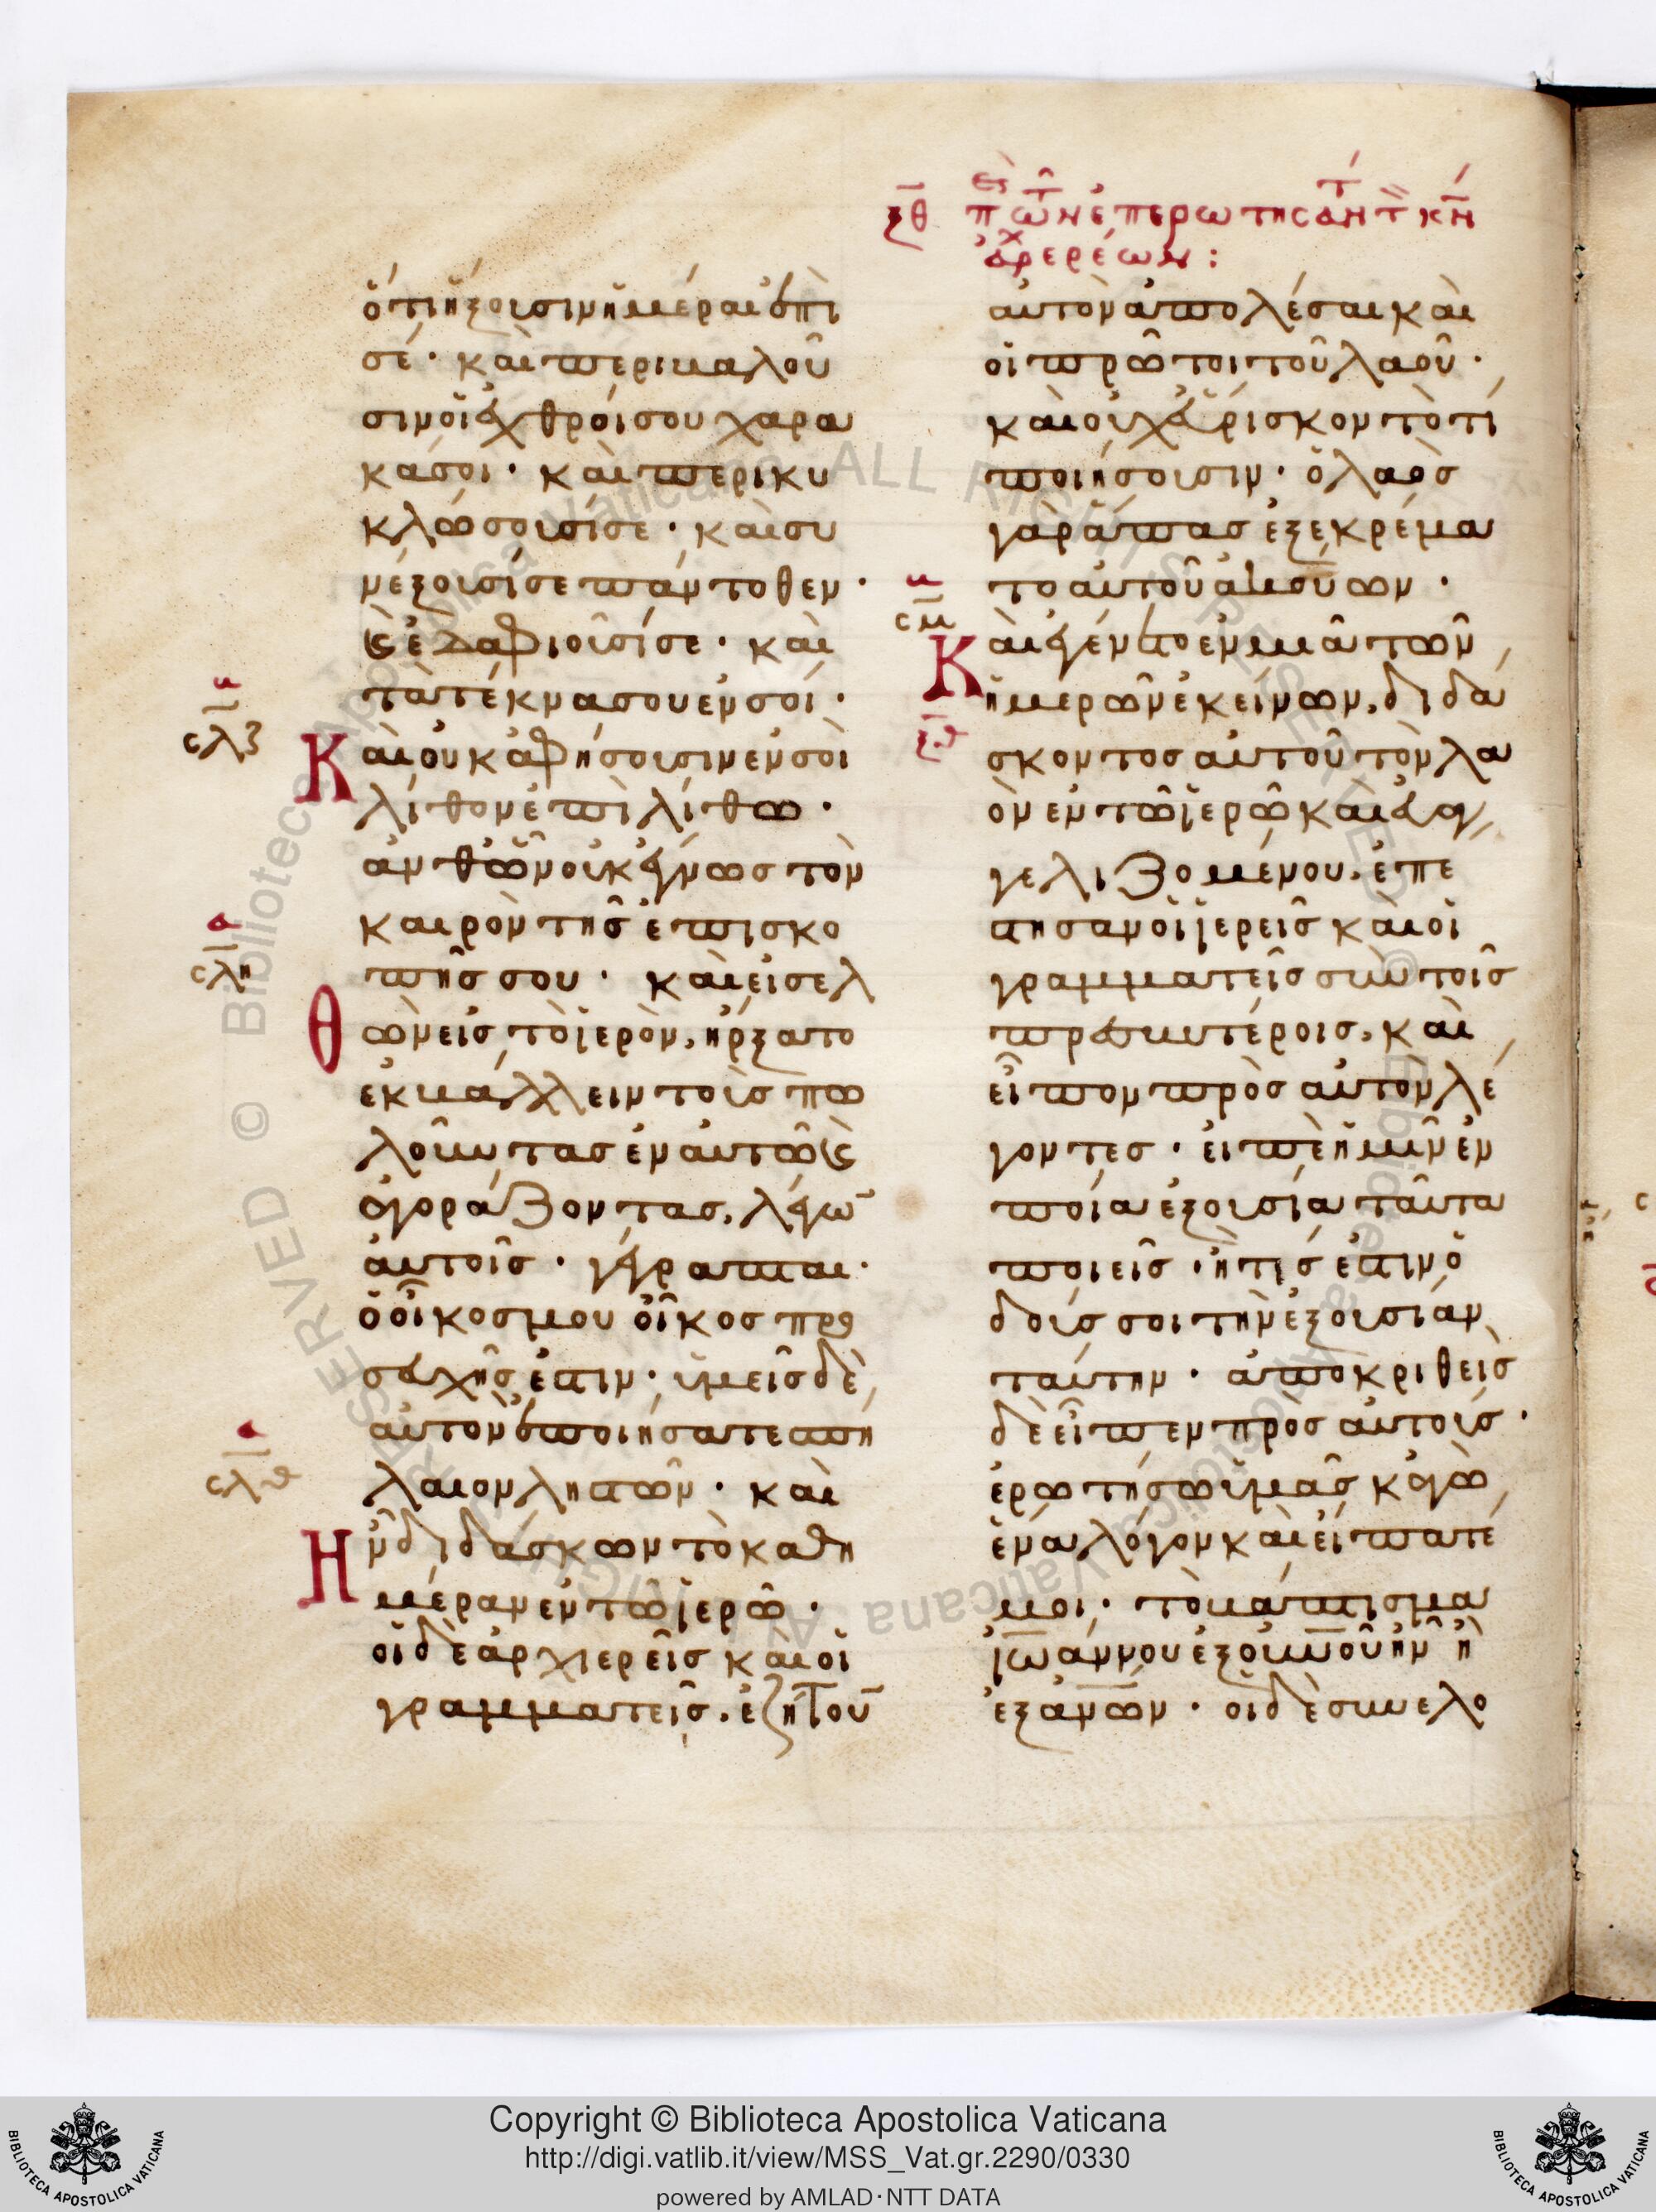 ξθ π τῶν ἐπερωτησάντ τ κ
ἀρχερέων:
ὅτι ἥξουσιν ἡμέραι ἐπὶ
σέ· καὶ περιβαλοῦ
σιν οἱ ἐχθροί σου χαρα
κά σοι· καὶ περικυ
κλώσουσί σε· καὶ συ
νέξουσί σε πάντοθεν·
καὶ ἐδαφιοῦσί σε· καὶ
τὰ τέκνα σου ἐν σοί·
σλζ
Καὶ οὐκ ἀφήσουσιν ἐν σοὶ
λίθον ἐπὶ λίθω·
ἀνθ ὧν οὐκ ἔγνωσ τὸν
καιρὸν τῆσ ἐπισκο
πῆσ σου· καὶ εἰσελ
σλη
Θὼν εἰσ τὸ ἱερὸν, ἤρξατο
ἐκβάλλειν τοὺσ πω
λοῦντασ ἐν αὐτῶ καὶ
ἀγοράζοντασ, λέγω
αὐτοῖσ· γέγραπται·
ὁ οἶκοσ μου οἶκοσ προ
σευχῆσ ἐστιν· ὑμεῖσ δὲ
αὐτὸν ἐποιήσατε σπή
λαιον ληστῶν· καὶ
σλθ
Ἦν διδάσκων τὸ καθη
μέραν ἐν τῶ ἱερῶ·
οἱ δὲ ἀρχιερεῖσ καὶ οἱ
γραμματεῖσ, ἐζήτου
αὐτὸν ἀπολέσαι καὶ
οἱ πρῶτοι τοῦ λαοῦ·
καὶ οὐχ εὕρισκον τὸ τί
ποιήσουσιν· ὁ λαὸσ
γὰρ ἅπασ ἐξεκρέμα
το αὐτοῦ ἀκούων·
σμ
Καὶ ἐγένετο ἐν μιᾶ τῶν
ἡμερῶν ἐκείνων, διδά
ξθ
σκοντοσ αὐτοῦ τὸν λα
ὸν ἐν τῶ ἱερῶ καὶ εὐαγ
γελιζομένου, ἐπέ
στησαν οἱ ἱερεῖσ καὶ οἱ
γραμματεῖσ σὺν τοῖσ
πρεσβυτέροισ, καὶ
εἶπον πρὸσ αὐτὸν λέ
γοντεσ· εἰπὲ ἡμῖν ἐν
ποία ἐξουσία ταῦτα
ποιεῖσ· ἤ τίσ ἐστιν ὁ
δούσ σοι τὴν ἐξουσίαν
ταύτην· ἀποκριθεὶσ
δὲ εἶπεν πρὸσ αὐτούσ·
ἐρωτήσω ὑμᾶσ κἀγὼ
ἕνα λόγον καὶ εἴπατέ
μοι· τὸ βάπτισμα
ἰωάννου ἐξ οὐνοῦ ἦν ἢ
ἐξ ἀνων· οἱ δὲ συνελο
Copyright © Biblioteca Apostolica Vaticana
http://digi.vatlib.it/view/MSS_Vat.gr.2290/0330
powered by AMLAD·NTT DATA
BIBLIOTECA APOSTOLICA VATICANA
BIBLIOTECA APOSTOLICA VATICANA